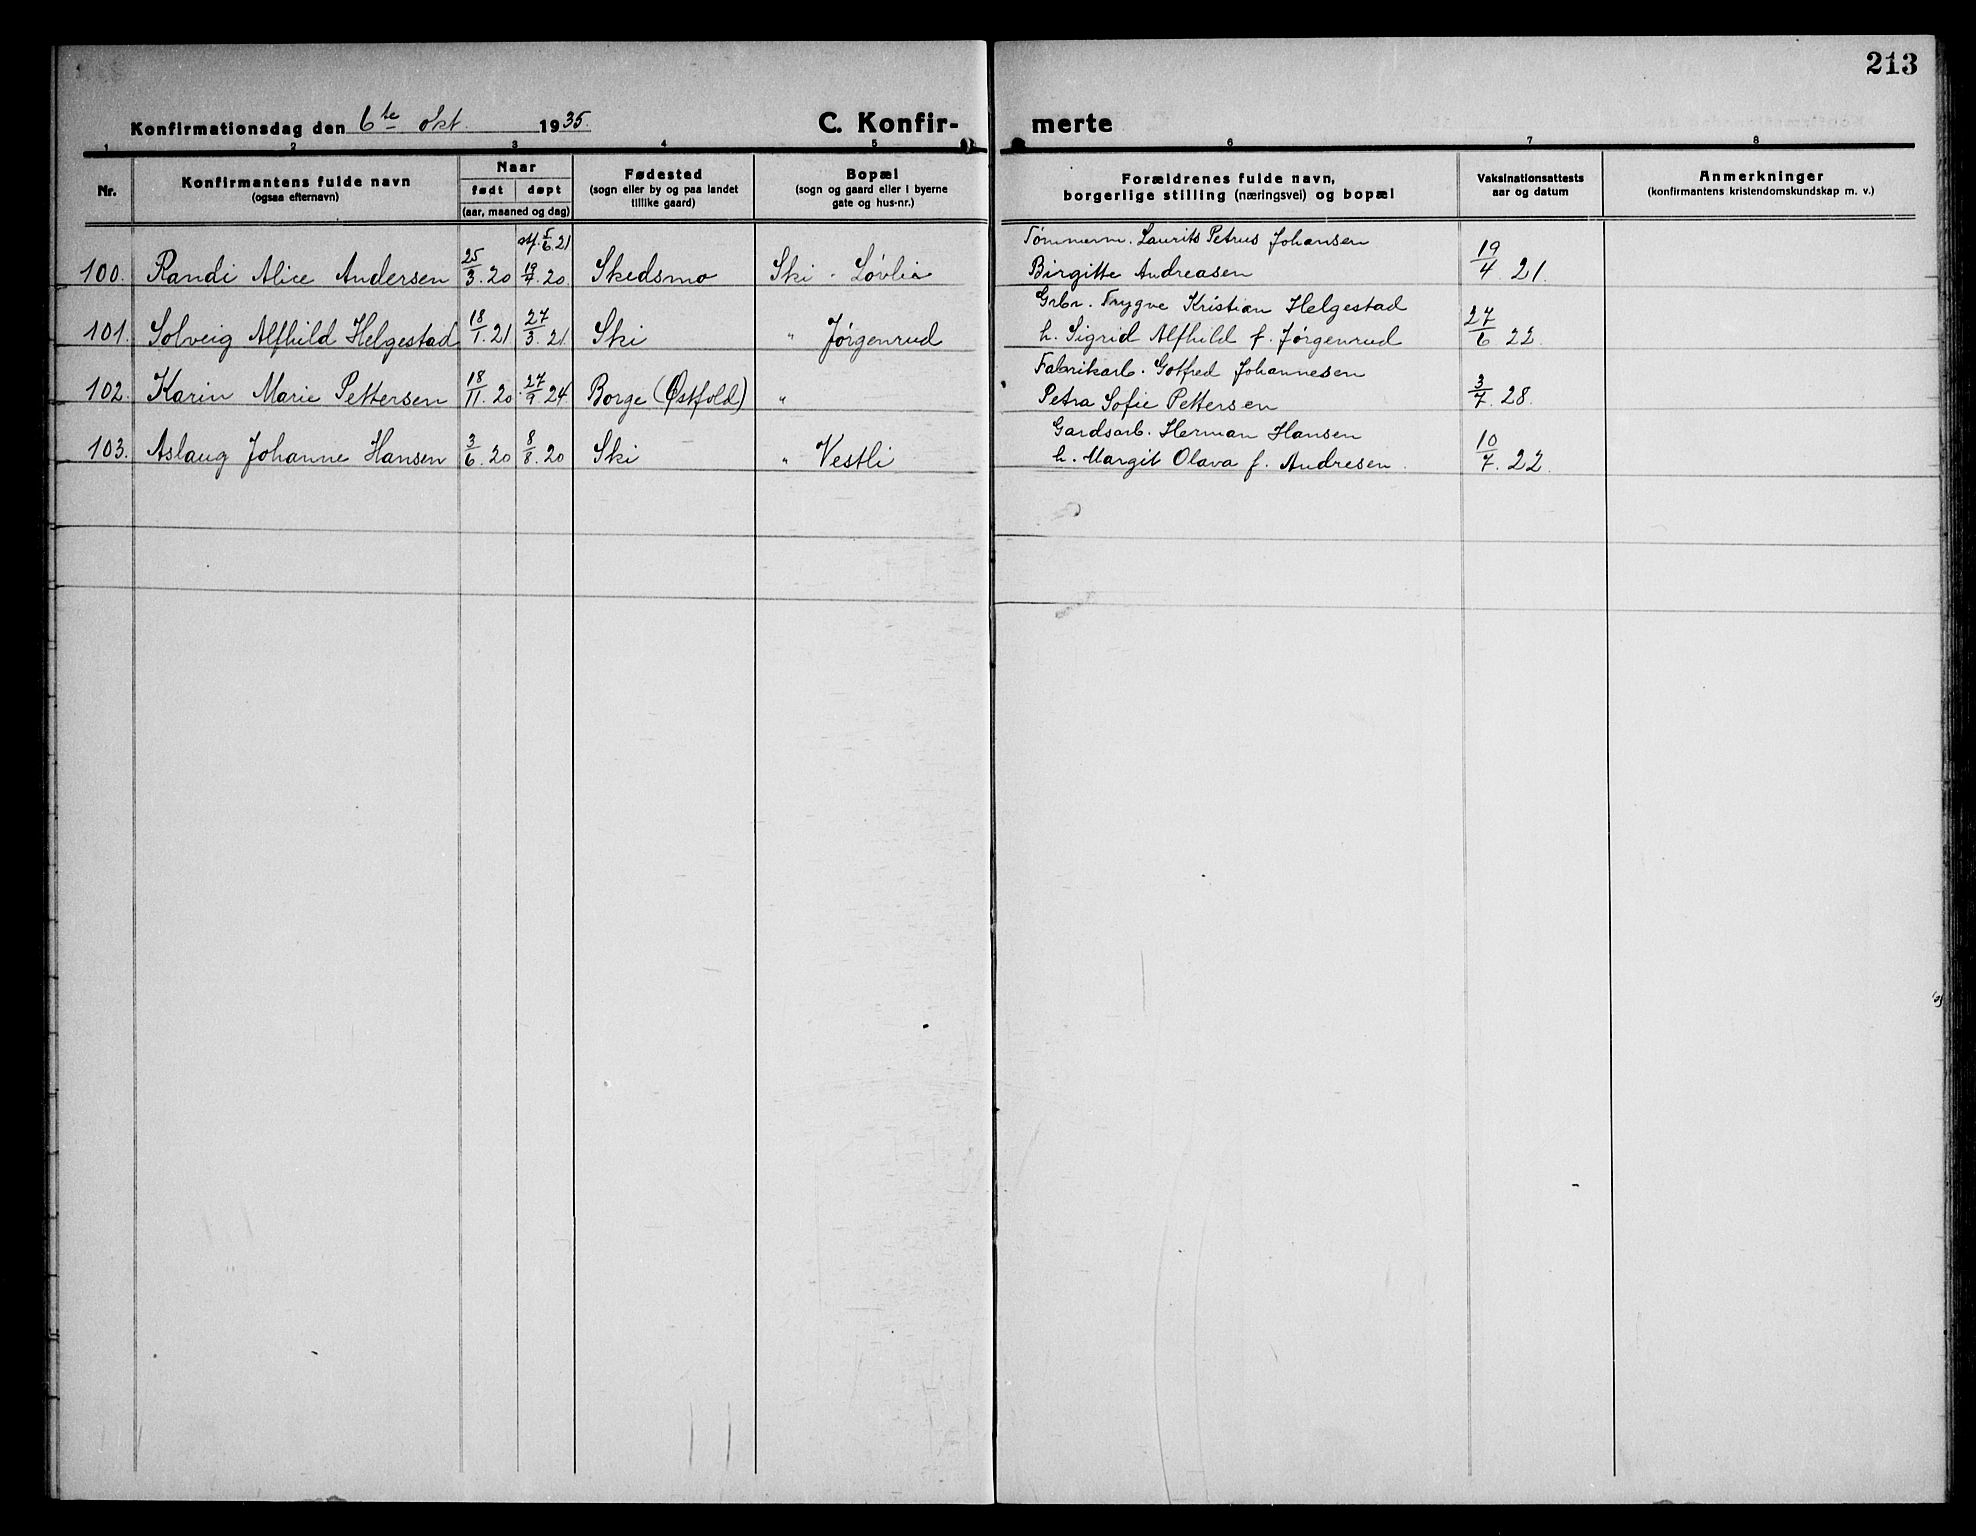 213
Konfirmationsdag den 6te okt. 1935. C. Konfir- merte
1 2 3 4 5 6 7 8
Nr. Konfirmantens fulde navn (ogsaa efternavn) Naar født døpt (aar, maaned og dag) Fødested (sogn eller by og paa landet tillike gaard) Bopæl (sogn og gaard eller i byerne gate og hus-nr.) Forældrenes fulde navn, borgerlige stilling (næringsvei) og bopæl Vaksinationsattests aar og datum Anmerkninger (konfirmantens kristendomskundskap m. v.)
5/6 21 Tømmerm. Laurits Petrus Johansen
100. Randi Alice Andersen 25/3. 20 19/7. 20 Skedsmo Ski - Løvlia Birgitte Andreasen 19/4. 21.
Grbr. Trygve Kristian Helgestad
101. Solveig Alfhild Helgestad 18/1. 21 27/3. 21 Ski " Jørgenrud h. Sigrid Alfhild f. Jørgenrud 27/6 22.
Fabrikarb. Gotfred Johannesen
102. Karin Marie Pettersen 18/11. 20 27/9 24 Borge (Østfold) " Petra Sofie Pettersen 3/7. 28.
Gardsarb. Herman Hansen
103. Aslaug Johanne Hansen 3/6. 20 8/8. 20 Ski " Vestli h. Margit Olava f. Andresen. 10/7. 22.